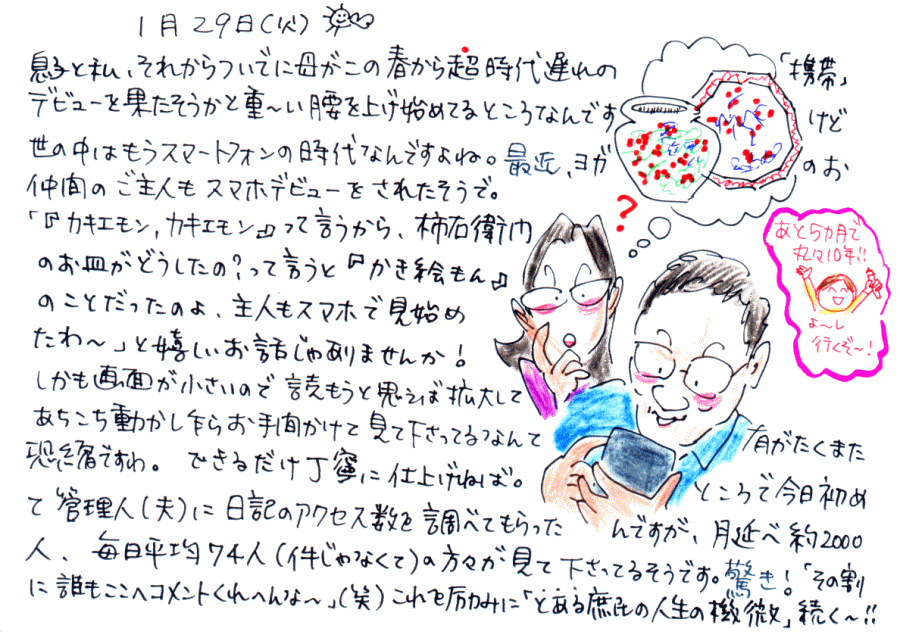 1月29日(火)
息子と私、それからついでに母がこの春から超時代遅れの「携帯」
デビューを果たそうかと重〜い腰を上げ始めてるところなんですけど
世の中はもうスマートフォンの時代なんですよね。最近、ヨガのお
仲間のご主人もスマホデビューをされたそうで。
「『カキエモン,カキエモン』って言うから、柿右衛門
のお皿がどうしたの?って言うと『かき絵もん』
のことだったのよ、主人もスマホで見始め
たわ〜」と嬉しいお話じゃありませんか!
しかも画面が小さいので読もうと思えば拡大して
あちこち動かし乍らお手間かけて見て下さってるなんて
恐縮ですわ。できるだけ丁寧に仕上げねば。
有がたくまた
ところで今日初め
て管理人(夫)に日記のアクセス数を調べてもらったんですが、月延べ約2000
人、毎日平均74人(件じゃなくて)の方々が見て下さってるそうです。驚き!「その割
に誰もここへコメントくれへんな〜」(笑)これを励みに「とある庶民の人生の機微」続く〜!!
?
あと5カ月で
丸々10年!!
よ〜し
行くぞ〜!